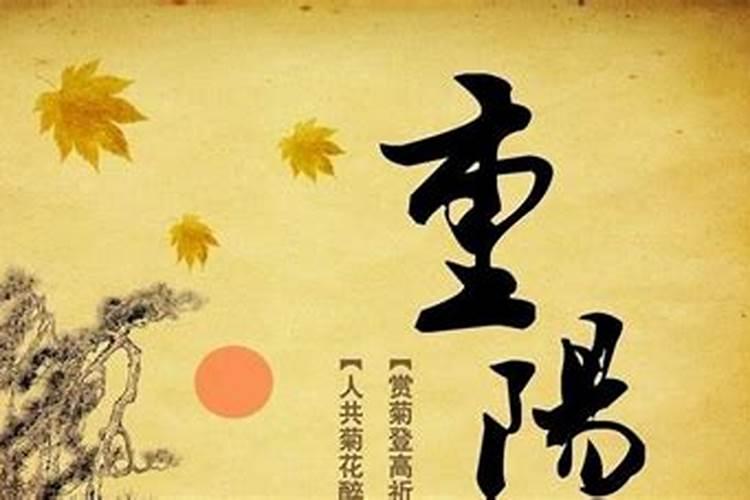 重陽
【赏菊登高祈
【人共菊花醉